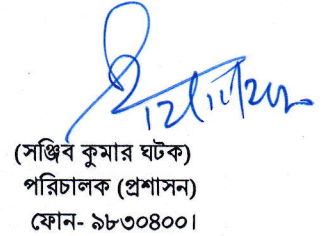 (সঞ্জিব কুমার ঘটক)
পরিচালক (প্রশাসন)
ফোন- ৯৮৩০৪০০।